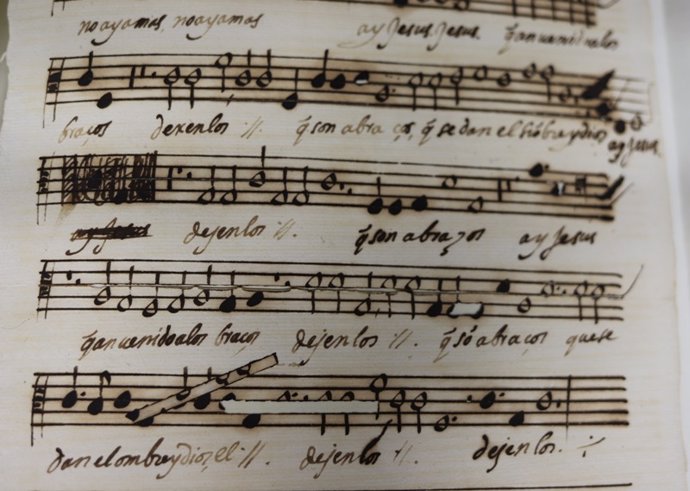 no ayamas, no ayamas ay Jesus Jesus q̃ an uenido a los
braços dexenlos :||. q̃ son abraços, q̃ se dan el hõbre y dios ay Jesus
ay Jesus dejenlos :||. q̃ son abraços ay Jesus
q̃ an uenido a los braços dejenlos :||. q̃ sõ abraços que se
dan el ombre y dios, el :||. dejenlos :||. dejenlos.